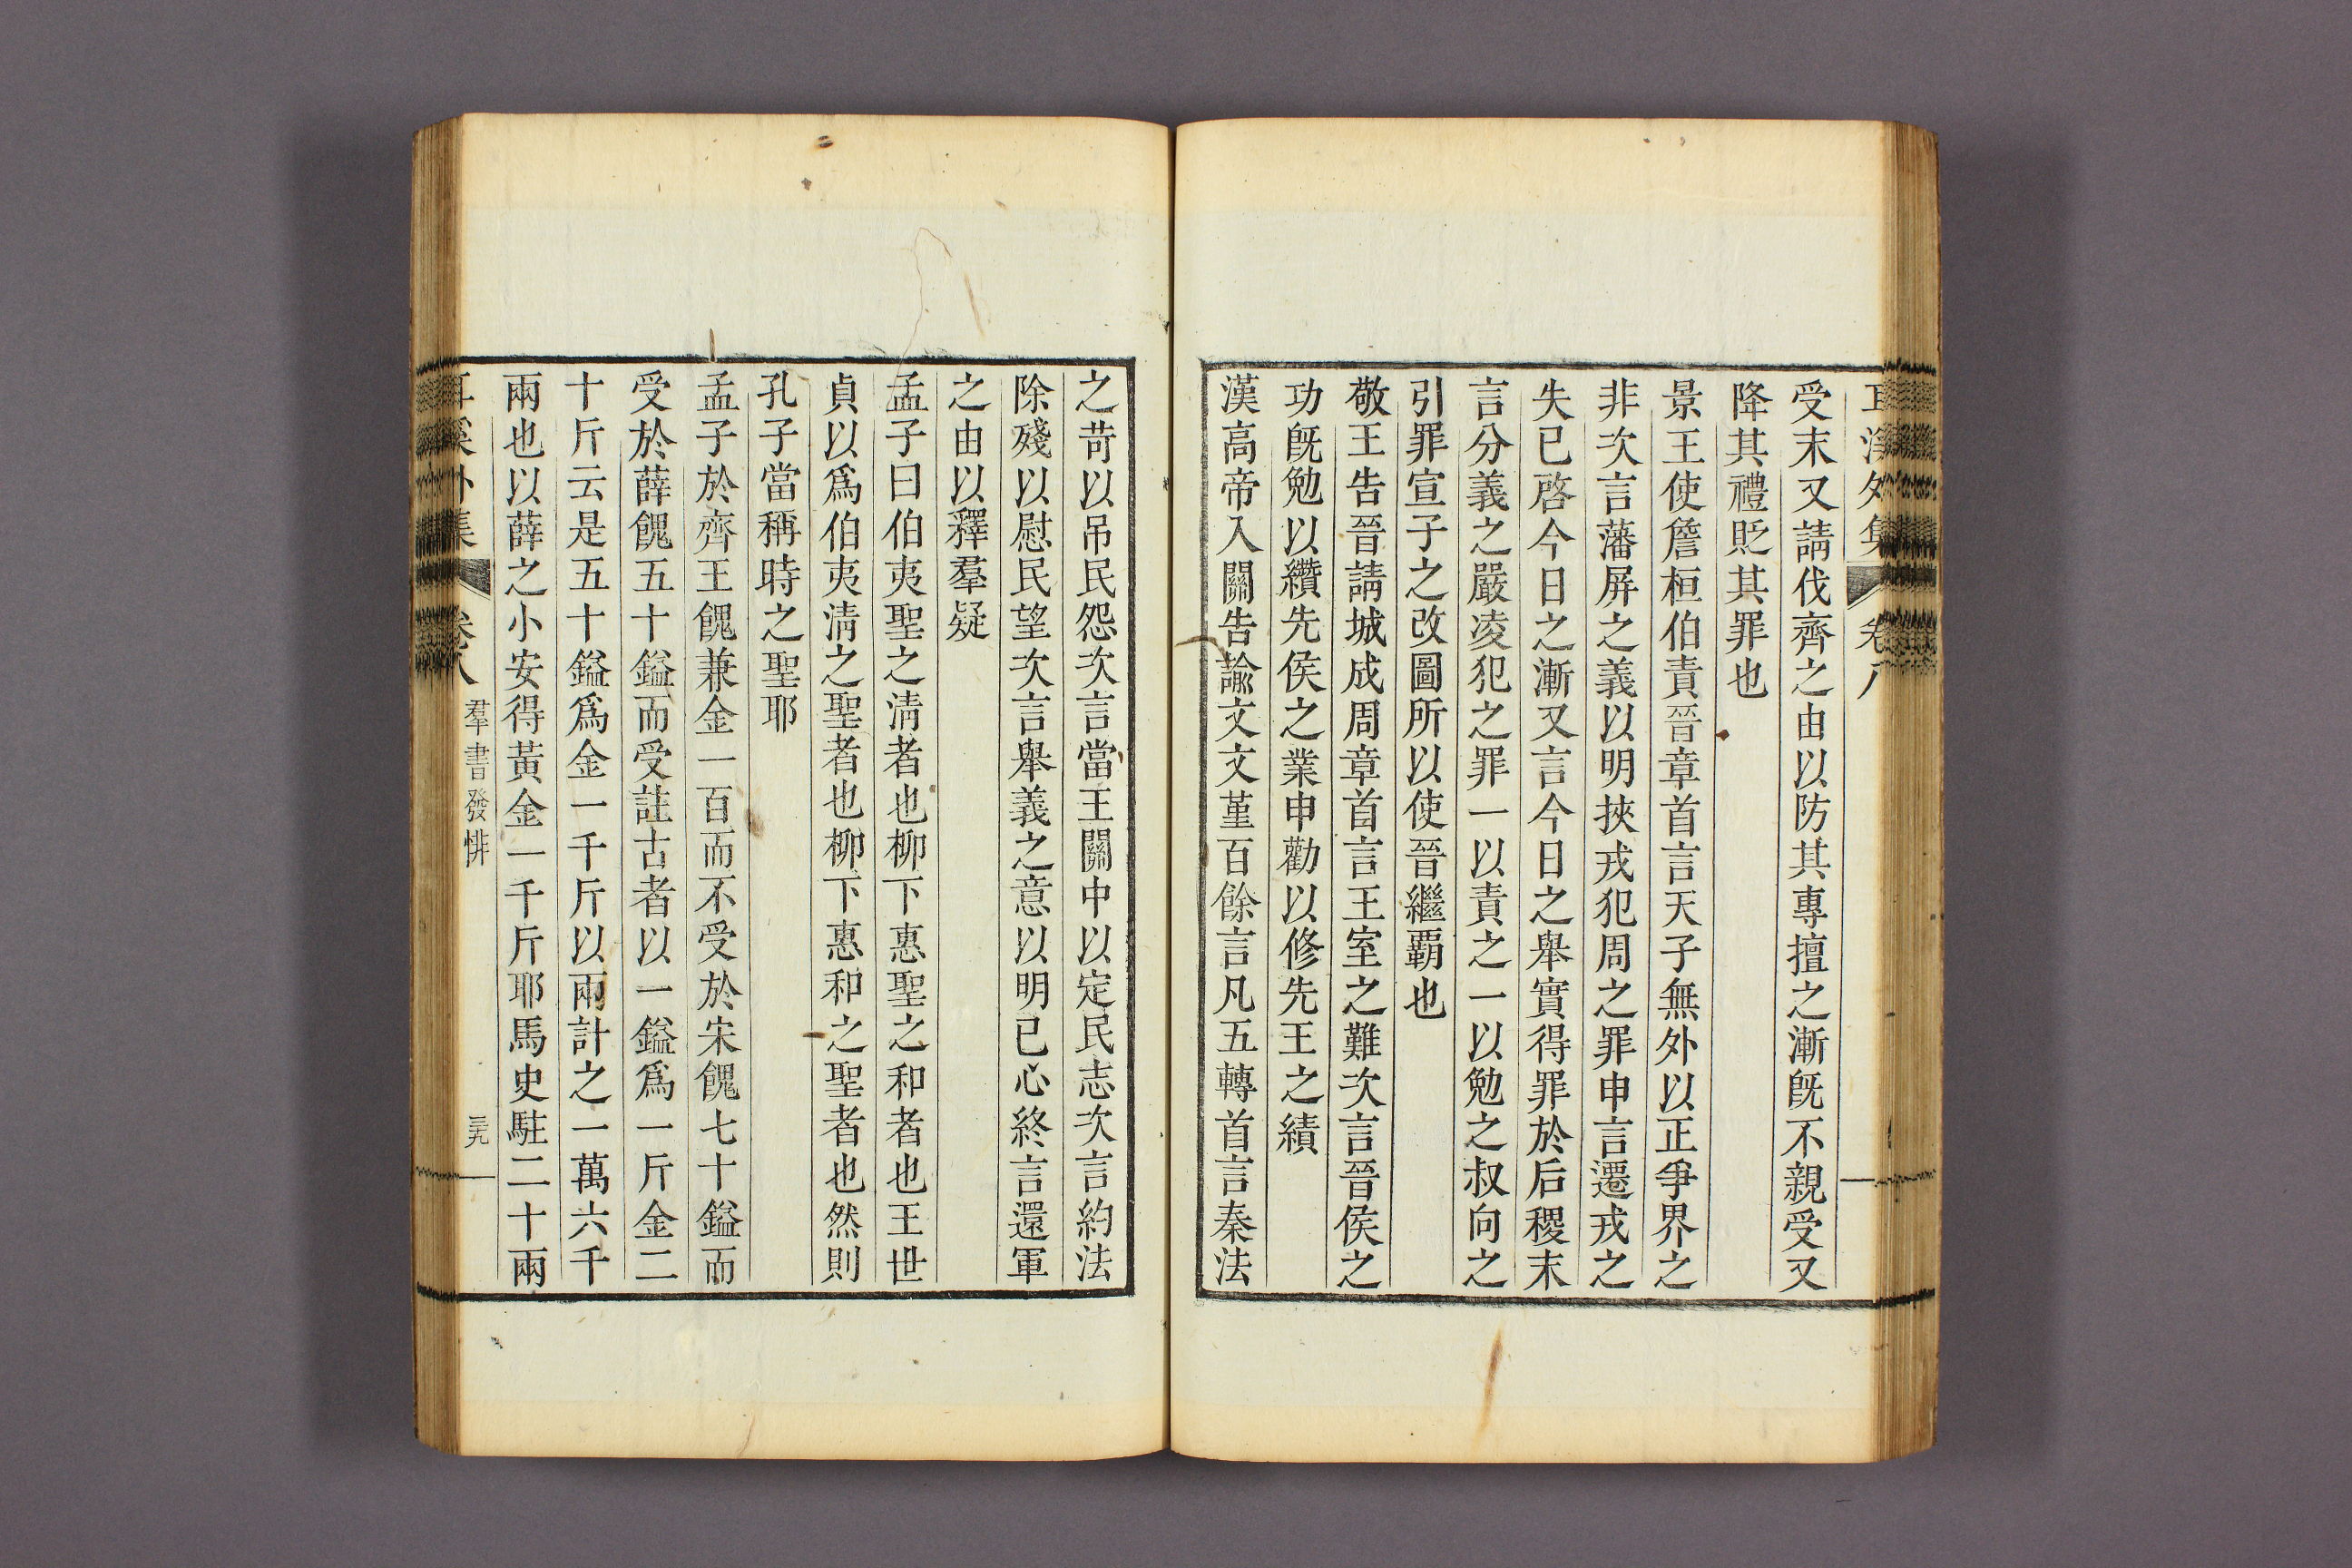 耳溪外集 卷八
受末又請伐齊之由以防其專擅之漸旣不親受又
降其禮貶其罪也
景王使詹桓伯責晉章首言天子無外以正爭界之
非次言藩屏之義以明挾戎犯周之罪申言遷戎之
失已啓今日之漸又言今日之舉實得罪於后稷末
言分義之嚴凌犯之罪一以責之一以勉之叔向之
引罪宣子之改圖所以使晉繼覇也
敬王告晉請城成周章首言王室之難次言晉侯之
功旣勉以纘先侯之業申勸以修先王之績
漢高帝入關告諭文文堇百餘言凡五轉首言秦法
之苛以吊民怨次言當王關中以定民志次言約法
除殘以慰民望次言舉義之意以明已心終言還軍
之由以釋羣疑
孟子曰伯夷聖之淸者也柳下惠聖之和者也王世
貞以爲伯夷淸之聖者也柳下惠和之聖者也然則
孔子當稱時之聖耶
孟子於齊王餽兼金一百而不受於宋餽七十鎰而
受於薛餽五十鎰而受註古者以一鎰爲一斤金二
十斤云是五十鎰爲金一千斤以兩計之一萬六千
兩也以薛之小安得黃金一千斤耶馬史駐二十兩
耳溪外集 卷八 羣書發悱 三九